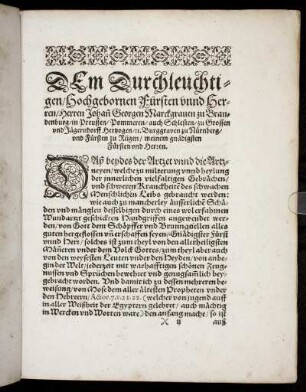 DEm Durchleuchti-
gen / Hochgebornen Fürsten vnnd Her-
ren / Herren Johañ Georgen Marckgrauen zu Bran-
denburg / in Preussen / Pommern / auch Schlesien / zu Crossen
vnd Jägerndorff Hertzogen / ꝛc. Burggrauen zu Nürnberg /
vnd Fürsten zu Rügen / meinem gnädigsten
Fürsten vnd Herren.
DAß beydes der Artzet vnnd die Artz-
neyen / welche zu milterung vnnd heylung
der innerlichen vielfaltigen Gebrächen /
vnd schweren Kranckheitẽ des schwachen
Menschlichen Leibs gebraucht werden:
wie auch zu mancherley äusserliche Schä-
den vnd mänglen desselbigen durch eines wolerfahrnen
Wundartzt geschickten Handgriffen angewendet wer-
den / von Gott dem Schöpffer vnd Brunnquellen alles
guten hergeflossen vñ erschaffen seyen / Gnädigster Fürst
vnnd Herr / solches ist zum theyl von den allerheiligsten
Männeren vnder dem Volck Gottes / zum theyl aber auch
von den weysesten Leuten vnder den Heyden / von anbe-
gin der Welt / jederzeit mit warhafftigen schönen Zeug-
nussen vnd Sprüchen bewehret vnd gnugsamlich bey-
gebracht worden. Vnd damit ich zu dessen mehreren be-
weisung / von Mose dem aller ältesten Propheten vnder
den Hebreern / Actor. 7. v. 21. 22. (welcher von jugend auff
in aller Weißheit der Egyptern gelehret / auch mächtig
in Wercken vnd Worten ware) den anfang mache / so ist
X ij auß